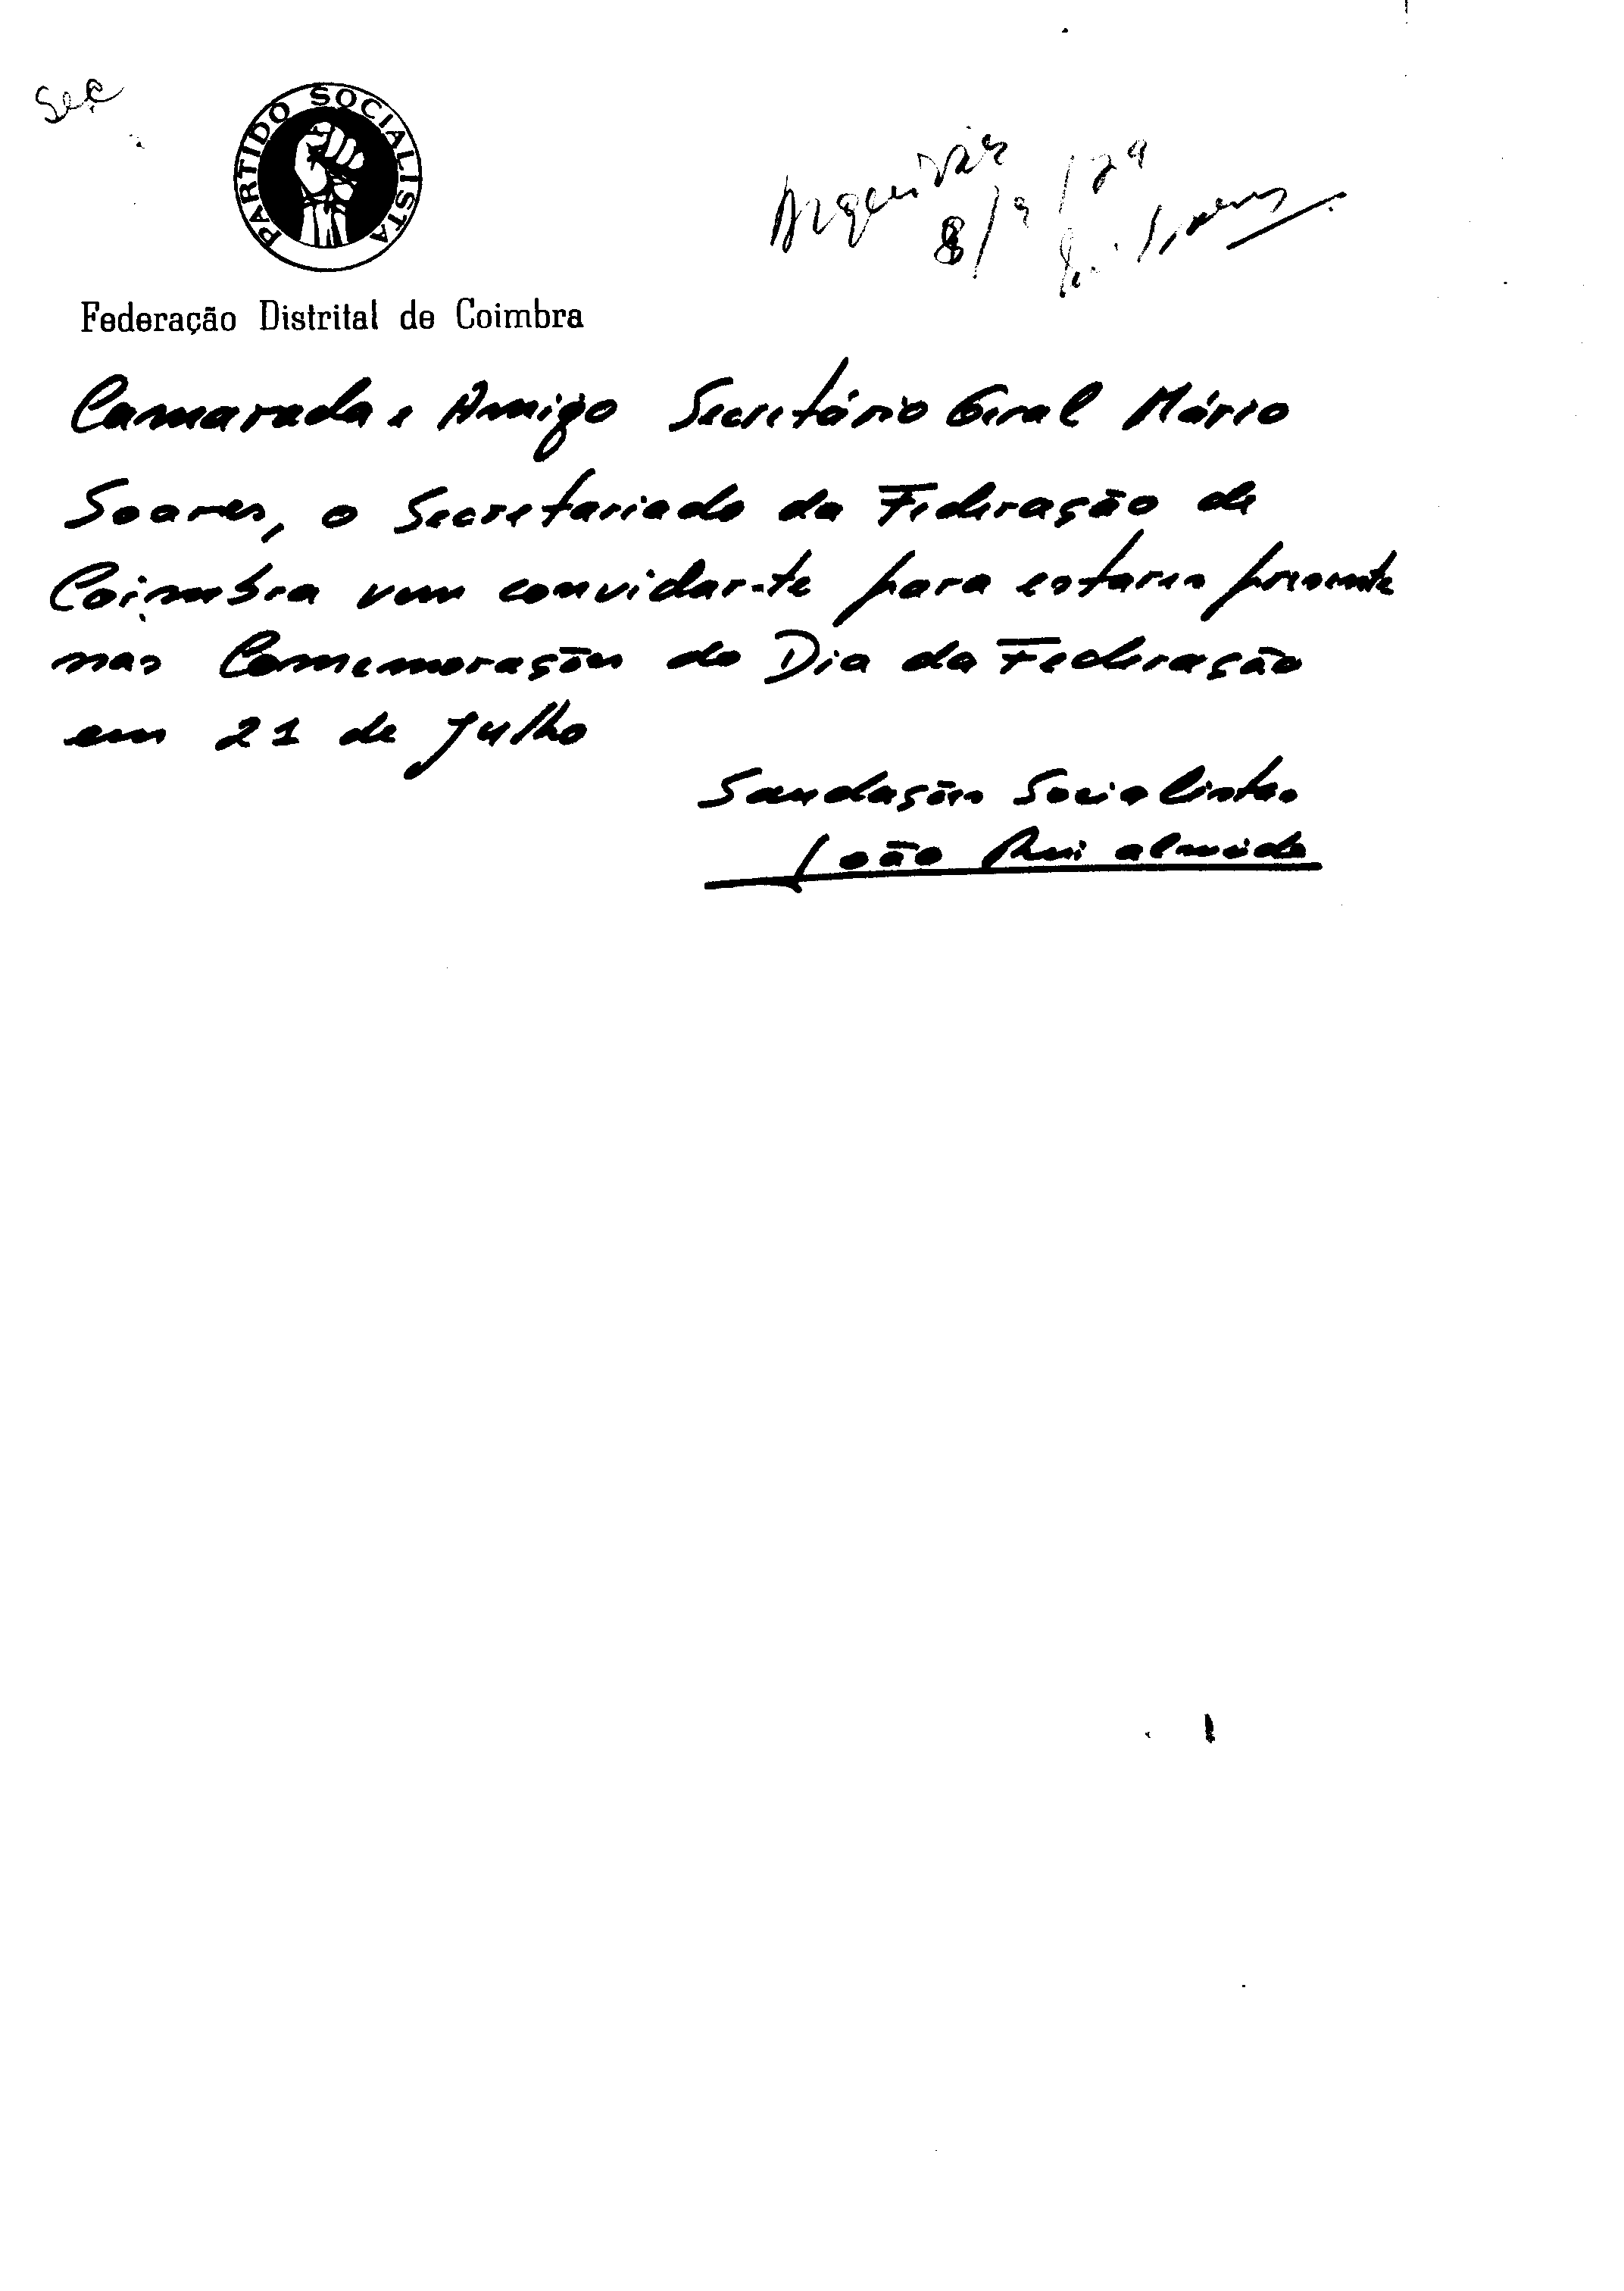 Sec
PARTIDO SOCIALISTA
Arquivar
8/9/79
Federação Distrital de Coimbra
Camarada e Amigo Secretário Geral Mário
Soares, o Secretariado da Federação de
Coimbra vem convidar-te para estares presente
nas Comemorações do Dia da Federação
em 21 de Julho
Saudações Socialistas
João Rui Almeida